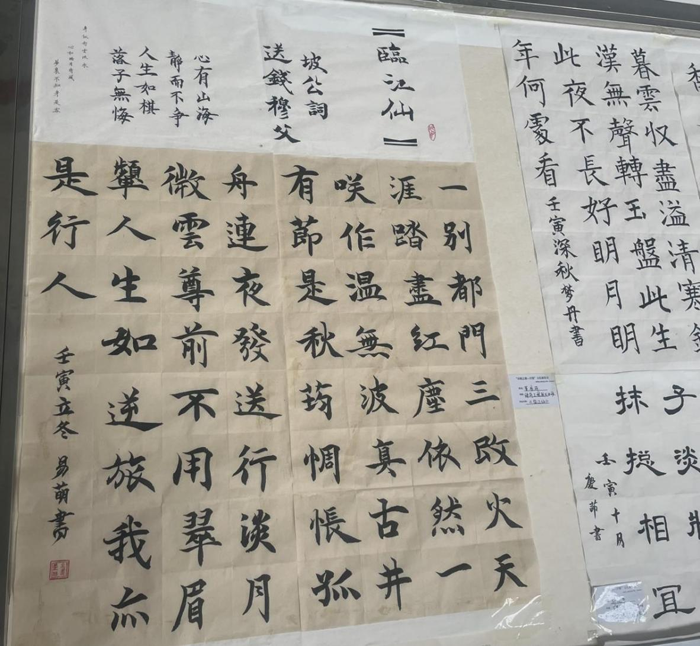 【臨江仙】
坡公詞
送錢穆父
心有山海
靜而不争
人生如棋
落子無悔
一别都門三改火天
涯踏盡紅塵依然一
咲作温無波真古井
有節是秋筠惆悵孤
舟連夜發送行淡月
微雲尊前不用翠眉
顰人生如逆旅我亦
是行人
壬寅立冬 易萌書
暮雲収盡溢清寒
漢無聲轉玉盤此生
此夜不長好眀月眀
年何處看
壬寅深秋梦丹書
子淡妝
抹捴相宜
壬寅十月
慶節書